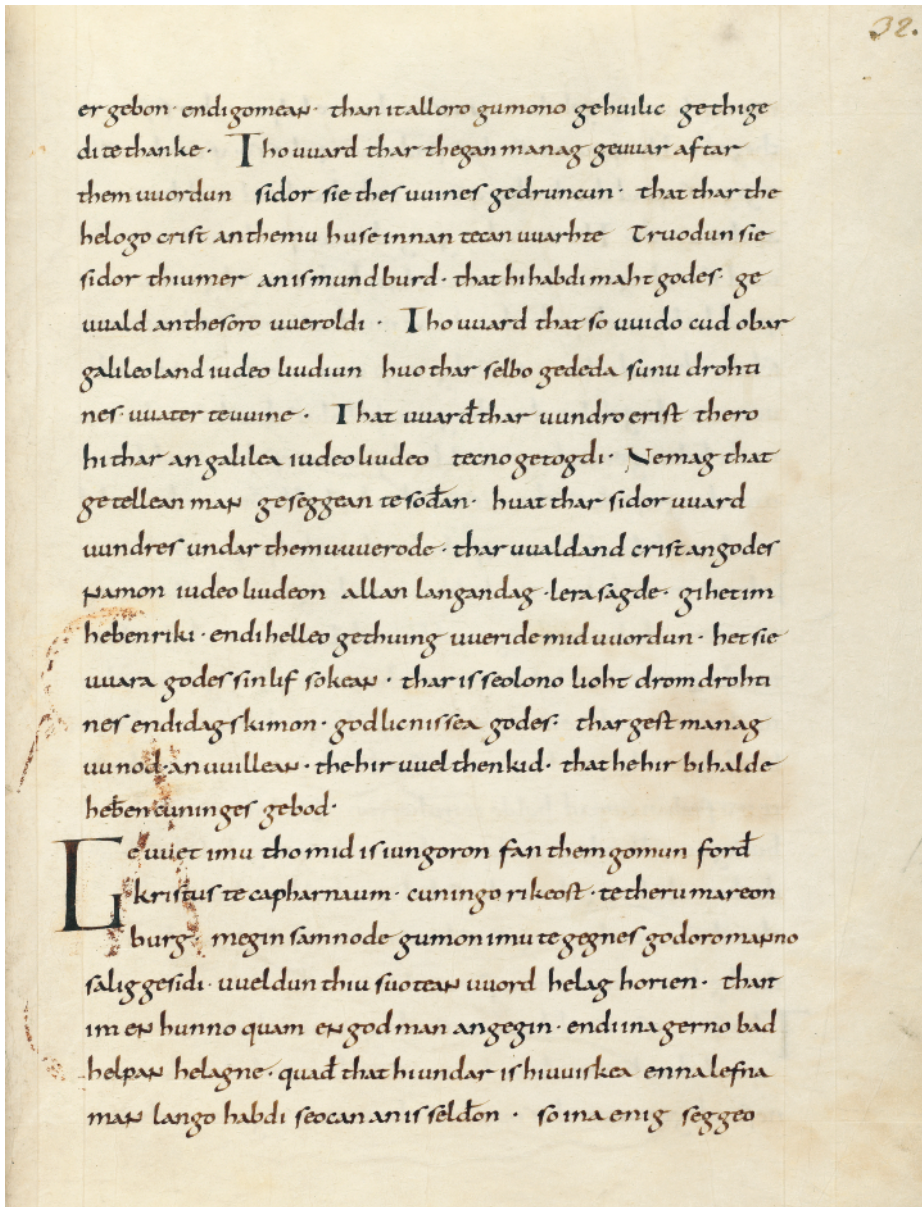 32.
er gebon· endi gomean· than it alloro gumono gehuilic gethige
di te thanke· Tho uuard thar thegan manag geuuar aftar
them uuordun sidor sie thes uuines gedruncun· that thar the
helogo crist an themu huse innan tecan uuarhte Truodun sie
sidor thiu mer an is mundburd· that hi habdi maht godes· ge
uuald an thesoro uueroldi· Tho uuard that so uuido cud obar
galileo land iudeo liudiun huo thar selbo gededa sunu drohti
nes· uuater te uuine· That uuarđ thar uundro erist thero
hi thar an galilea iudeo liudeo tecno getogdi· Ne mag that
getellean man geseggean te sođan· huat thar sidor uuard
uundres undar themu uuerode· thar uualdand crist an godes
namon iudeo liudeon allan langan dag· lera sagde· gihet im
heƀenriki· endi helleo gethuing uueride mid uuordun· het sie
uuara godes sinlif sokean· thar is seolono lioht drom drohti
nes endi dagskimon· godlicnissea godes· thar gest manag
uunod· an uuillean· the hir uuel thenkid· that he hir bihalde
heƀencuninges gebod·
Geuuet imu tho mid is iungoron fan them gomun forđ
kristus te capharnaum· cuningo rikeost· te theru mareon
burg· megin samnode gumon imu tegegnes godoro manno
salig gesidi· uueldun thiu suotean uuord helag horien· thar
im en hunno quam en god man angegin· endi ina gerno bad
helpan helagne· quađ that hi undar is hiuuiskea enna lefna
man lango habdi seocan an is selđon· so ina enig seggeo